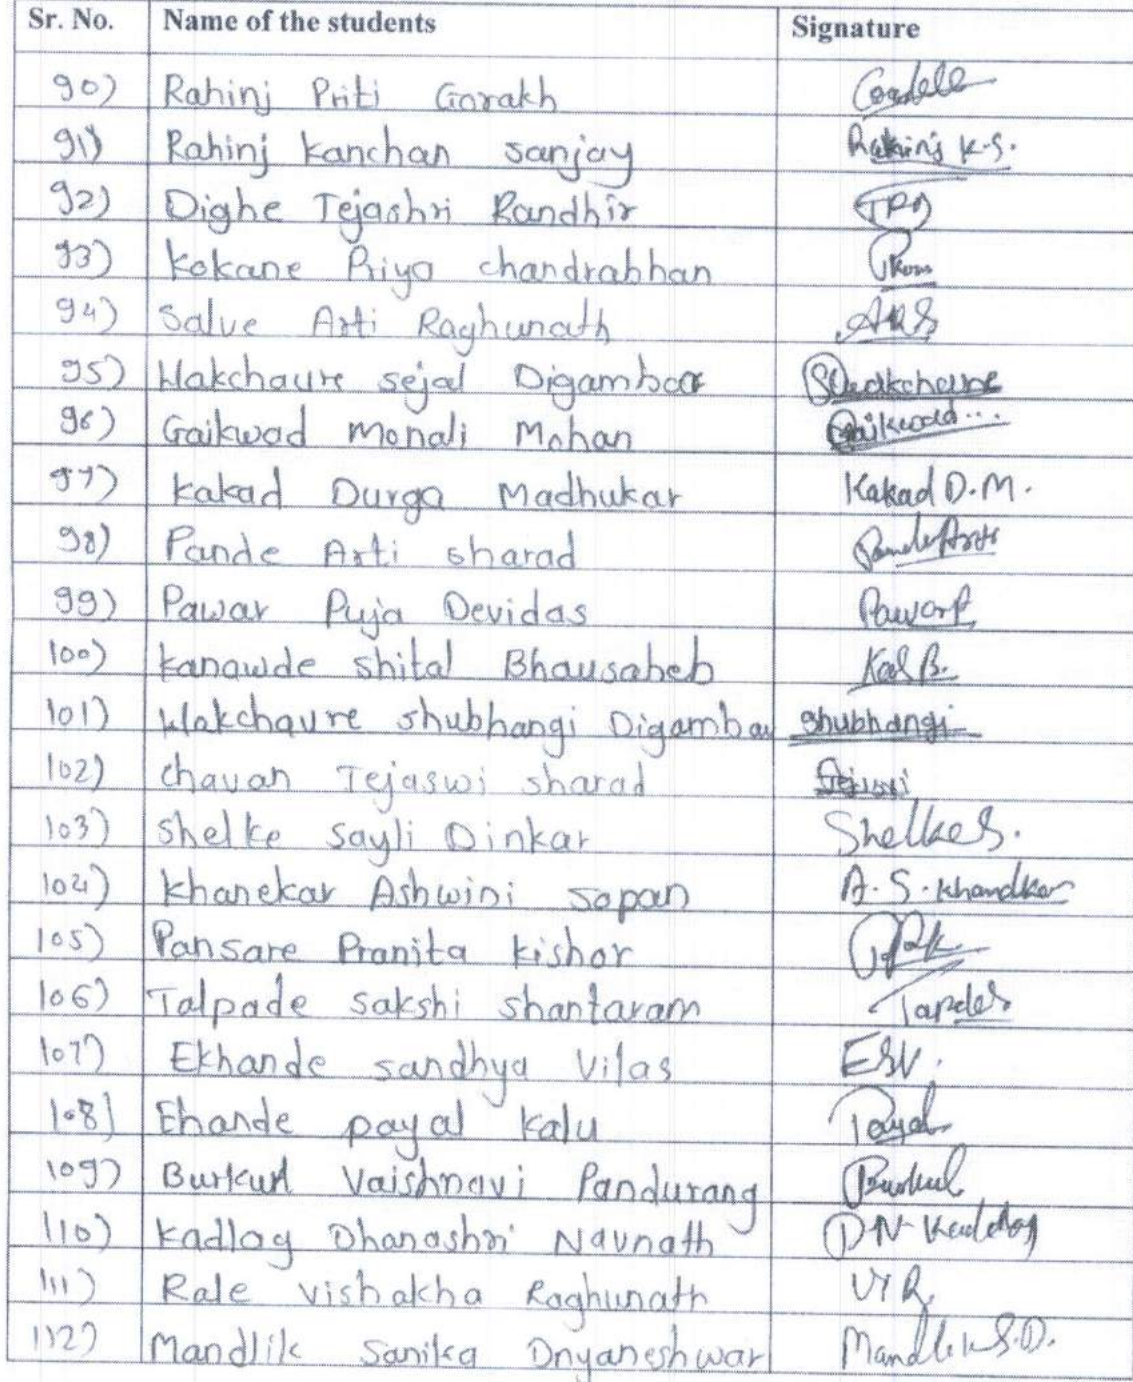 Sr. No. Name of the students Signature
90) Rahinj Priti Gorakh
91) Rahinj kanchan sanjay Rahinj K.S.
92) Dighe Tejashri Randhir TRD
93) kokane Priya chandrabhan
94) Salve Arti Raghunath ARS
95) Wakchaure sejal Digambar SWakchaure
96) Gaikwad monali Mohan Gaikwad...
97) kakad Durga Madhukar Kakad D.M.
98) Pande Arti sharad Pande Arti
99) Pawar Puja Devidas PawarP.
100) kanawde shital Bhausaheb
101) Wakchaure shubhangi Digambar shubhangi
102) chavan Tejaswi sharad
103) shelke sayli Dinkar ShelkeS.
104) khanekar Ashwini sopan A.S.khandkar
105) Pansare Pranita kishor
106) Talpade sakshi shantaram
107) Ekhande sandhya Vilas ESV.
108) Ehande payal kalu Payal
109) Burkul Vaishnavi Pandurang Burkul
110) kadlag Dhanashri Navnath DN Kadlag
111) Rale vishakha Raghunath VRR
112) Mandlik Sanika Dnyaneshwar Mandlik S.D.